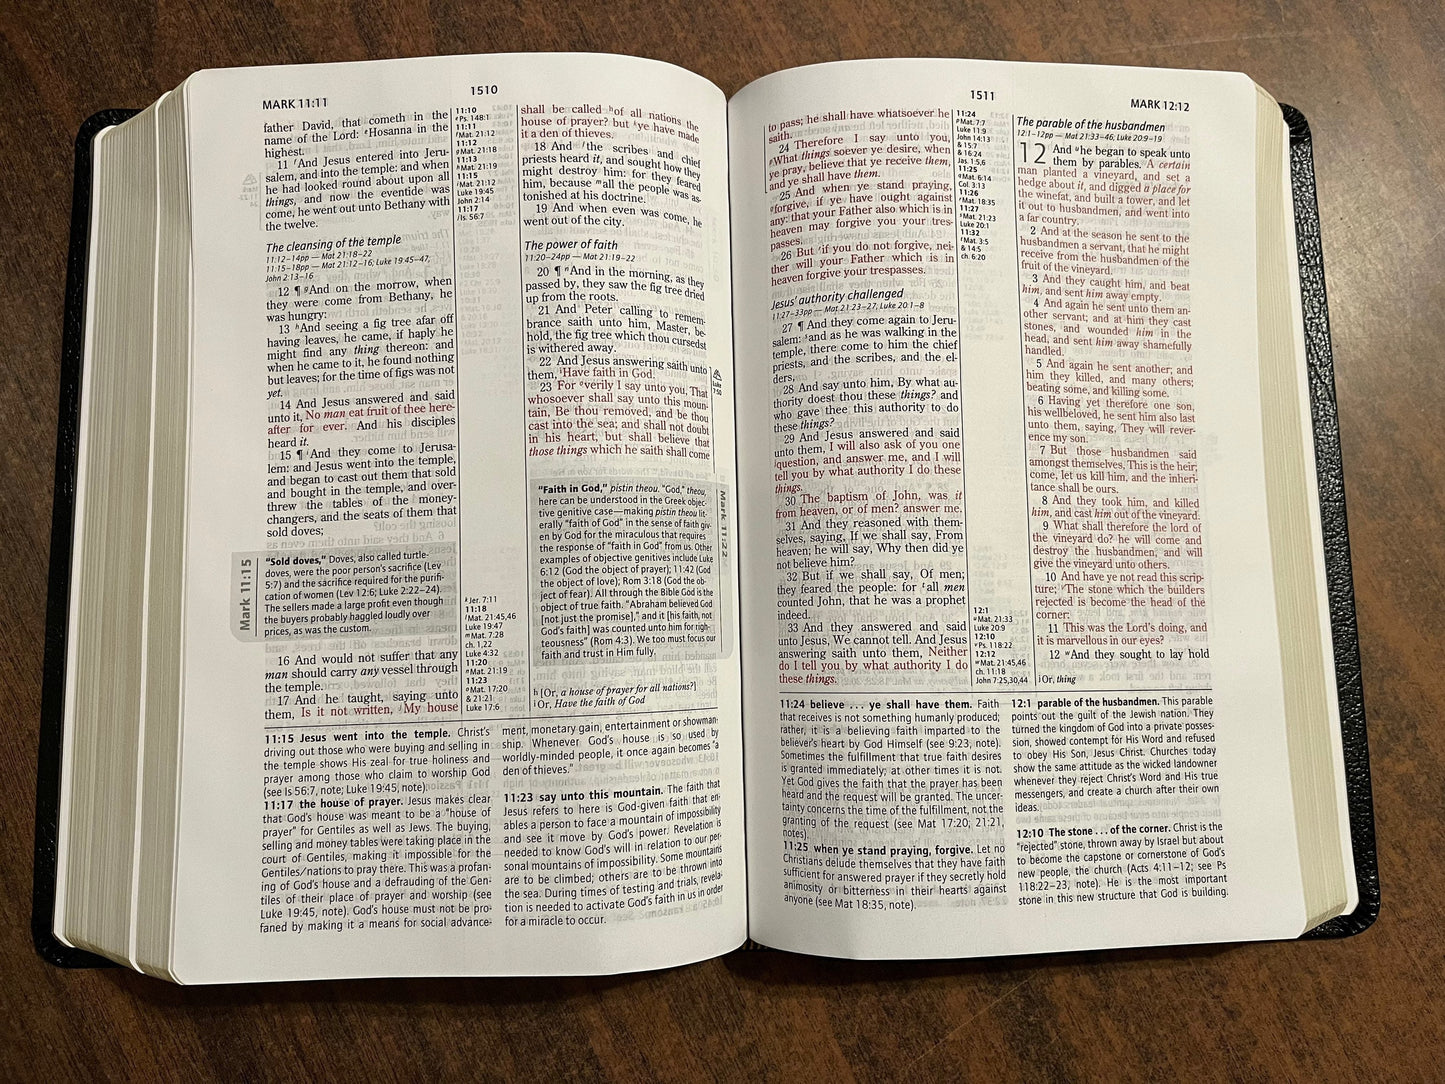 MARK 11:11
1510
father David, that cometh in the
name of the Lord: Hosanna in the
highest.
11 And Jesus entered into Jeru-
salem, and into the temple: and when
he had looked round about upon all
things, and now the eventide was
come, he went out unto Bethany with
the twelve.
The cleansing of the temple
11:12–14pp — Mat 21:18–22
11:15–18pp — Mat 21:12–16; Luke 19:45–47;
John 2:13–16
12 ¶ ᵍAnd on the morrow, when
they were come from Bethany, he
was hungry:
13 ʰAnd seeing a fig tree afar off
having leaves, he came, if haply he
might find any thing thereon: and
when he came to it, he found nothing
but leaves; for the time of figs was not
yet.
14 And Jesus answered and said
unto it, No man eat fruit of thee here-
after for ever. And his disciples
heard it.
15 ¶ ⁱAnd they come to Jerusa-
lem: and Jesus went into the temple,
and began to cast out them that sold
and bought in the temple, and over-
threw the tables of the money-
changers, and the seats of them that
sold doves;
Mark 11:15
"Sold doves," Doves, also called turtle-
doves, were the poor person's sacrifice (Lev
5:7) and the sacrifice required for the purifi-
cation of women (Lev 12:6; Luke 2:22–24).
The sellers made a large profit even though
the buyers probably haggled loudly over
prices, as was the custom.
16 And would not suffer that any
man should carry any vessel through
the temple.
17 And he taught, saying unto
them, Is it not written, My house
11:10
Ps. 148:1
11:11
Mat. 21:12
11:12
Mat. 21:18
11:13
Mat. 21:19
11:15
Mat. 21:12
Luke 19:45
John 2:14
11:17
Is. 56:7
Jer. 7:11
11:18
Mat. 21:45,46
Luke 19:47
Mat. 7:28
ch. 1,22
Luke 4:32
11:20
Mat. 21:19
11:23
Mat. 17:20
& 21:21
Luke 17:6
shall be called of all nations the
house of prayer? but ye have made
it a den of thieves.
18 And the scribes and chief
priests heard it, and sought how they
might destroy him: for they feared
him, because all the people was as-
tonished at his doctrine.
19 And when even was come, he
went out of the city.
The power of faith
11:20–24pp — Mat 21:19–22
20 ¶ ⁿAnd in the morning, as they
passed by, they saw the fig tree dried
up from the roots.
21 And Peter calling to remem-
brance saith unto him, Master, be-
hold, the fig tree which thou cursedst
is withered away.
22 And Jesus answering saith unto
them, Have faith in God.
23 For verily I say unto you, That
whosoever shall say unto this moun-
tain, Be thou removed, and be thou
cast into the sea; and shall not doubt
in his heart, but shall believe that
those things which he saith shall come
Luke
Mark 11:22
"Faith in God," pistin theou. "God," theou,
here can be understood in the Greek objec-
tive genitive case—making pistin theou lit-
erally "faith of God" in the sense of faith giv-
en by God for the miraculous that requires
the response of "faith in God" from us. Other
examples of objective genitives include Luke
6:12 (God the object of prayer); 11:42 (God
the object of love); Rom 3:18 (God the ob-
ject of fear). All through the Bible God is the
object of true faith. "Abraham believed God
[not just the promise]." and it [his faith, not
God's faith] was counted unto him for righ-
teousness" (Rom 4:3). We too must focus our
faith and trust in Him fully.
h [Or, a house of prayer for all nations?]
i Or, Have the faith of God
11:15 Jesus went into the temple. Christ's
driving out those who were buying and selling in
the temple shows His zeal for true holiness and
prayer among those who claim to worship God
(see Is 56:7, note; Luke 19:45, note).
11:17 the house of prayer. Jesus makes clear
that God's house was meant to be a "house of
prayer" for Gentiles as well as Jews. The buying,
selling and money tables were taking place in the
court of Gentiles, making it impossible for the
Gentiles/nations to pray there. This was a profan-
ing of God's house and a defrauding of the Gen-
tiles of their place of prayer and worship (see
Luke 19:45, note). God's house must not be pro-
faned by making it a means for social advance-
ment, monetary gain, entertainment or showman-
ship. Whenever God's house is so used by
worldly-minded people, it once again becomes "a
den of thieves."
11:23 say unto this mountain. The faith that
Jesus refers to here is God-given faith that en-
ables a person to face a mountain of impossibility
and see it move by God's power. Revelation is
needed to know God's will in relation to our per-
sonal mountains of impossibility. Some mountains
are to be climbed; others are to be thrown into
the sea. During times of testing and trials, revela-
tion is needed to activate God's faith in us in order
for a miracle to occur.
1511
MARK 12:12
to pass; he shall have whatsoever he
saith.
24 Therefore I say unto you,
What things soever ye desire, when
ye pray, believe that ye receive them,
and ye shall have them.
25 And when ye stand praying,
forgive, if ye have ought against
any: that your Father also which is in
heaven may forgive you your tres-
passes.
26 But if you do not forgive, nei-
ther will your Father which is in
heaven forgive your trespasses.
Jesus' authority challenged
11:27–33pp — Mat 21:23–27; Luke 20:1–8
27 ¶ And they come again to Jeru-
salem: and as he was walking in the
temple, there come to him the chief
priests, and the scribes, and the el-
ders,
28 And say unto him, By what au-
thority doest thou these things? and
who gave thee this authority to do
these things?
29 And Jesus answered and said
unto them, I will also ask of you one
question, and answer me, and I will
tell you by what authority I do these
things.
30 The baptism of John, was it
from heaven, or of men? answer me.
31 And they reasoned with them-
selves, saying, If we shall say, From
heaven; he will say, Why then did ye
not believe him?
32 But if we shall say, Of men;
they feared the people: for all men
counted John, that he was a prophet
indeed.
33 And they answered and said
unto Jesus, We cannot tell. And Jesus
answering saith unto them, Neither
do I tell you by what authority I do
these things.
11:24
Mat. 7:7
Luke 11:9
John 14:13
& 15:7
& 16:24
Jas. 1:5,6
11:25
Mat. 6:14
Col. 3:13
11:26
Mat. 18:35
11:27
Mat. 21:23
Luke 20:1
11:32
Mat. 3:5
& 14:5
ch. 6:20
12:1
Mat. 21:33
Luke 20:9
12:10
Ps. 118:22
12:12
Mat. 21:45,46
ch. 11:18
John 7:25,30,44
The parable of the husbandmen
12:1–12pp — Mat 21:33–46; Luke 20:9–19
12 And he began to speak unto
them by parables. A certain
man planted a vineyard, and set a
hedge about it, and digged a place for
the winefat, and built a tower, and let
it out to husbandmen, and went into
a far country.
2 And at the season he sent to the
husbandmen a servant, that he might
receive from the husbandmen of the
fruit of the vineyard.
3 And they caught him, and beat
him, and sent him away empty.
4 And again he sent unto them an-
other servant; and at him they cast
stones, and wounded him in the
head, and sent him away shamefully
handled.
5 And again he sent another; and
him they killed, and many others;
beating some, and killing some.
6 Having yet therefore one son,
his wellbeloved, he sent him also last
unto them, saying, They will rever-
ence my son.
7 But those husbandmen said
amongst themselves, This is the heir;
come, let us kill him, and the inheri-
tance shall be ours.
8 And they took him, and killed
him, and cast him out of the vineyard.
9 What shall therefore the lord of
the vineyard do? he will come and
destroy the husbandmen, and will
give the vineyard unto others.
10 And have ye not read this scrip-
ture; The stone which the builders
rejected is become the head of the
corner:
11 This was the Lord's doing, and
it is marvellous in our eyes?
12 And they sought to lay hold
i Or, thing
11:24 believe . . . ye shall have them. Faith
that receives is not something humanly produced;
rather, it is a believing faith imparted to the
believer's heart by God Himself (see 9:23, note).
Sometimes the fulfillment that true faith desires
is granted immediately; at other times it is not.
Yet God gives the faith that the prayer has been
heard and the request will be granted. The uncer-
tainty concerns the time of the fulfillment, not the
granting of the request (see Mat 17:20; 21:21,
notes).
11:25 when ye stand praying, forgive. Let no
Christians delude themselves that they have faith
sufficient for answered prayer if they secretly hold
animosity or bitterness in their hearts against
anyone (see Mat 18:35, note).
12:1 parable of the husbandmen. This parable
points out the guilt of the Jewish nation. They
turned the kingdom of God into a private posses-
sion, showed contempt for His Word and refused
to obey His Son, Jesus Christ. Churches today
show the same attitude as the wicked landowner
whenever they reject Christ's Word and His true
messengers, and create a church after their own
ideas.
12:10 The stone . . . of the corner. Christ is the
"rejected" stone, thrown away by Israel but about
to become the capstone or cornerstone of God's
new people, the church (Acts 4:11–12; see Ps
118:22–23, note). He is the most important
stone in this new structure that God is building.